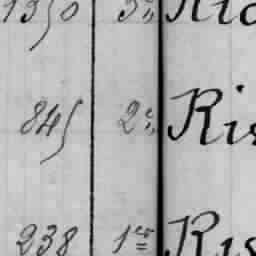 1350 3e Ric
845 2e Ris
238 1er Ris